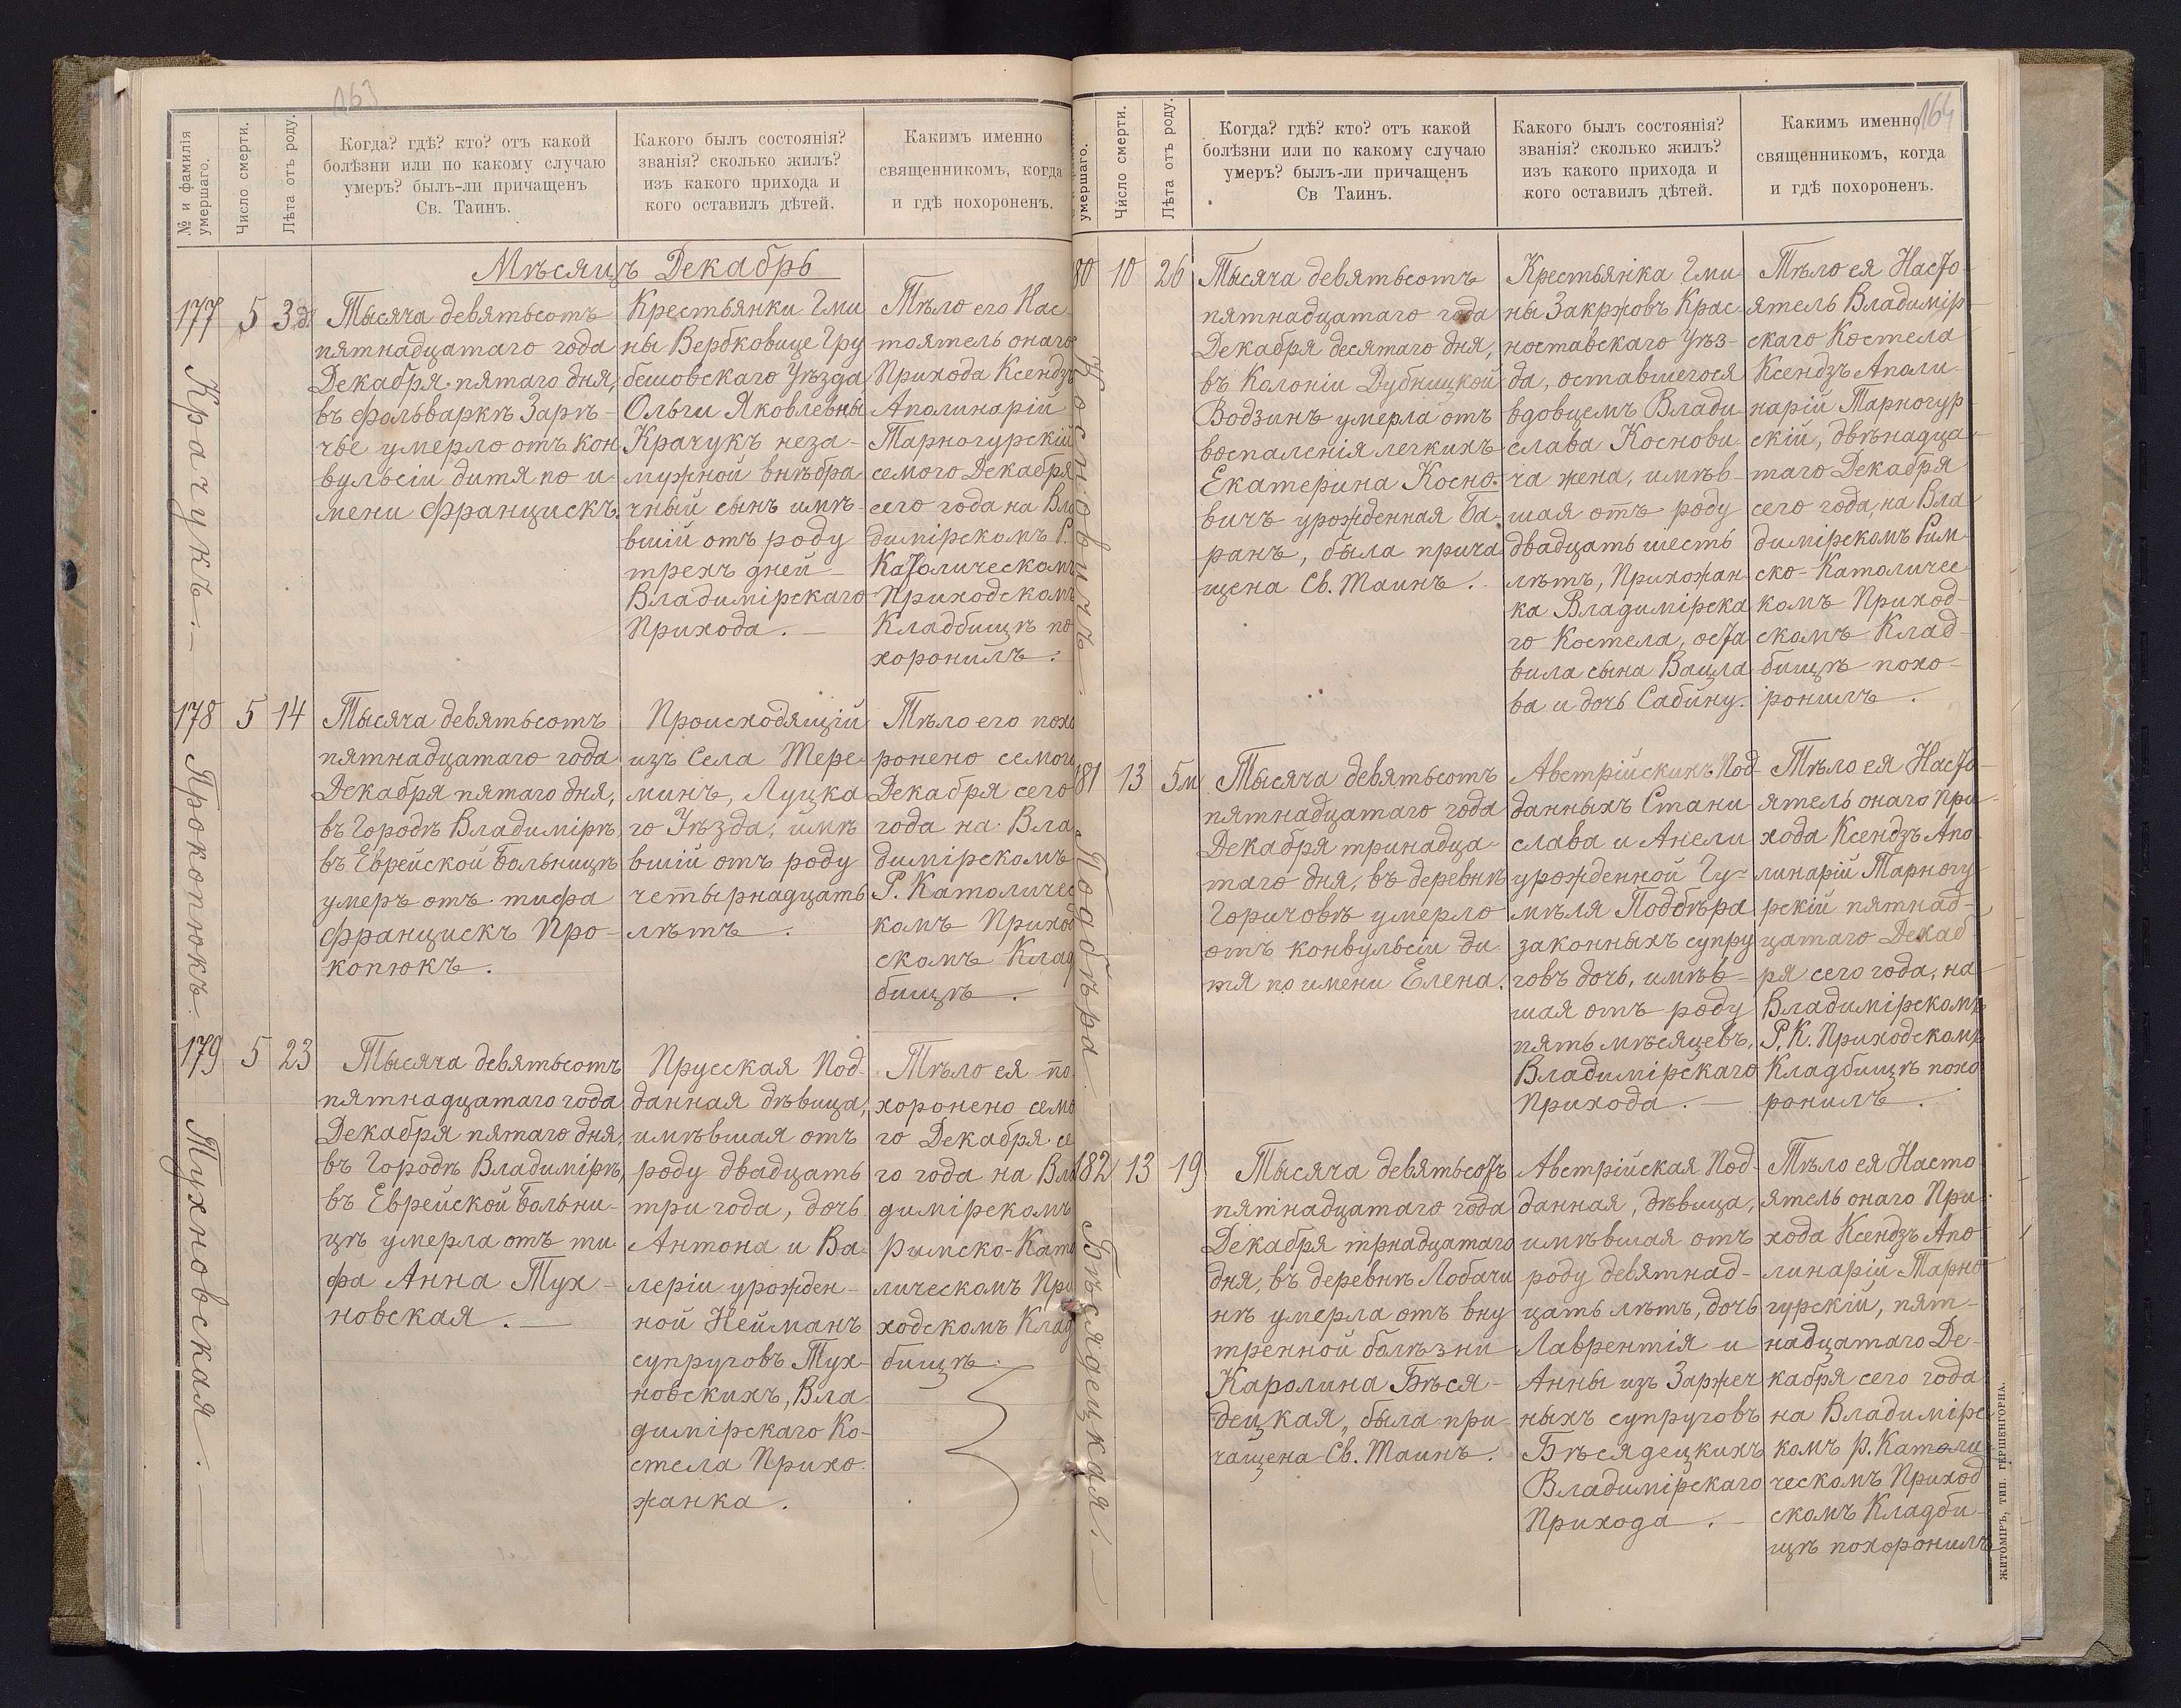 163
№ и фамилія умершаго.
Число смерти.
Лѣта отъ роду.
Когда? гдѣ? кто? отъ какой
болѣзни или по какому случаю
умеръ? былъ-ли причащенъ
Св. Таинъ.
Какого былъ состоянія?
званія? сколько жилъ?
изъ какого прихода и
кого оставилъ дѣтей.
Какимъ именно
священникомъ, когда
и гдѣ похороненъ.
Мѣсяцъ Декабрь
177
Крачукъ.
5
3 д.
Тысяча девятьсотъ
пятнадцатаго года
Декабря пятаго дня,
въ фольваркѣ Зарѣ-
чье умерло отъ кон
вульсіи дитя по и-
мени Францискъ.
Крестьянки Гми
ны Вербковице Гру
бешовскаго Уѣзда
Ольги Яковлевны
Крачукъ неза-
мужной внѣбра
чный сынъ имѣ-
вшій отъ роду
трехъ дней
Владимірскаго
Прихода.
Тѣло его Нас
тоятель онаго
Прихода Ксендзъ
Аполинарій
Тарногурскій
семого Декабря
сего года на Вла
димірскомъ Р.
Католическомъ
Приходскомъ
Кладбищѣ по
хоронилъ.
178
Прокопюкъ.
5
14
Тысяча девятьсотъ
пятнадцатаго года
Декабря пятаго дня,
въ Городѣ Владимірѣ,
въ Еврейской Больницѣ
умеръ отъ тифа
Францискъ Про-
копюкъ.
Происходящій
изъ Села Тере-
минъ, Луцка
го Уѣзда, имѣ
вшій отъ роду
четырнадцать
лѣтъ.
Тѣло его похо
ронено семого
Декабря сего
года на Вла
димірскомъ
Р. Католичес
комъ Приход
скомъ Клад
бищѣ.
179
Тухновская.
5
23
Тысяча девятьсотъ
пятнадцатаго года
Декабря пятаго дня,
въ Городѣ Владимірѣ,
въ Еврейской Больни-
цѣ умерла отъ ти-
фа Анна Тух-
новская.
Прусская Под-
данная дѣвица,
имѣвшая отъ
роду двадцать
три года, дочь
Антона и Ва-
леріи урожден-
ной Нейманъ
супруговъ Тух-
новскихъ, Вла-
димірскаго Ко-
стела Прихо-
жанка.
Тѣло ея по-
хоронено семо
го Декабря се
го года на Вла
димірскомъ
Римско-Като
лическомъ При
ходскомъ Клад
бищѣ.
164
умершаго.
Число смерти.
Лѣта отъ роду.
Когда? гдѣ? кто? отъ какой
болѣзни или по какому случаю
умеръ? былъ-ли причащенъ
Св Таинъ.
Какого былъ состоянія?
званія? сколько жилъ?
изъ какого прихода и
кого оставилъ дѣтей.
Какимъ именно
священникомъ, когда
и гдѣ похороненъ.
80
Косновичъ.
10
26
Тысяча девятьсотъ
пятнадцатаго года
Декабря десятаго дня,
въ Колоніи Дубницкой
Водзинъ умерла отъ
воспаленія легкихъ
Екатерина Косно-
вичъ урожденная Ба-
ранъ, была прича
щена Св. Таинъ.
Крестьянка Гми
ны Закржовъ Крас
ноставскаго Уѣз-
да, оставшегося
вдовцемъ Влади
слава Коснови
ча жена, имѣв-
шая отъ роду
двадцать шесть
лѣтъ, Прихожан
ка Владимірска
го Костела, оста
вила сына Вацла
ва и дочь Сабину.
Тѣло ея Насто-
ятель Владимір-
скаго Костела
Ксендзъ Аполи-
нарій Тарногур
скій, двѣнадца
таго Декабря
сего года, на Вла
димірскомъ Рим
ско-Католичес
комъ Приход-
скомъ Клад-
бищѣ похо-
ронилъ.
181
Подбѣра
13
5м
Тысяча девятьсотъ
пятнадцатаго года
Декабря тринадца-
таго дня, въ деревнѣ
Горичовѣ умерло
отъ конвульсіи ди
тя по имени Елена.
Австрійскихъ Под-
данныхъ Стани
слава и Анели
урожденной Гу-
мѣля Подбѣра
законныхъ супру
говъ дочь, имѣв-
шая отъ роду
пять мѣсяцевъ,
Владимірскаго
Прихода.
Тѣло ея Насто-
ятель онаго При-
хода Ксендзъ Апо-
линарій Тарногу
рскій пятнад-
цатаго Декаб
ря сего года, на
Владимірскомъ
Р. К. Приходскомъ
Кладбищѣ похо
ронилъ.
182
Бѣсядецкая.
13
19
Тысяча девятьсотъ
пятнадцатаго года
Декабря трнадцатаго
дня, въ деревнѣ Лобачи
нѣ умерла отъ вну
тренной болѣзни
Каролина Бѣся-
децкая, была при-
чащена Св. Таинъ.
Австрійская Под-
данная, дѣвица,
имѣвшая отъ
роду девятнад-
цать лѣтъ, дочь
Лаврентія и
Анны изъ Заржеч
ныхъ супруговъ
Бѣсядецкихъ
Владимірскаго
Прихода.
Тѣло ея Насто
ятель онаго При-
хода Ксендзъ Апо
линарій Тарно
гурскій, пят-
надцатаго Де-
кабря сего года
на Владимірс
комъ Р. Катали
ческомъ Приход
скомъ Кладби-
щѣ похоронилъ
ЖИТОМІРЪ, ТИП. ГЕРШЕНГОРНА.